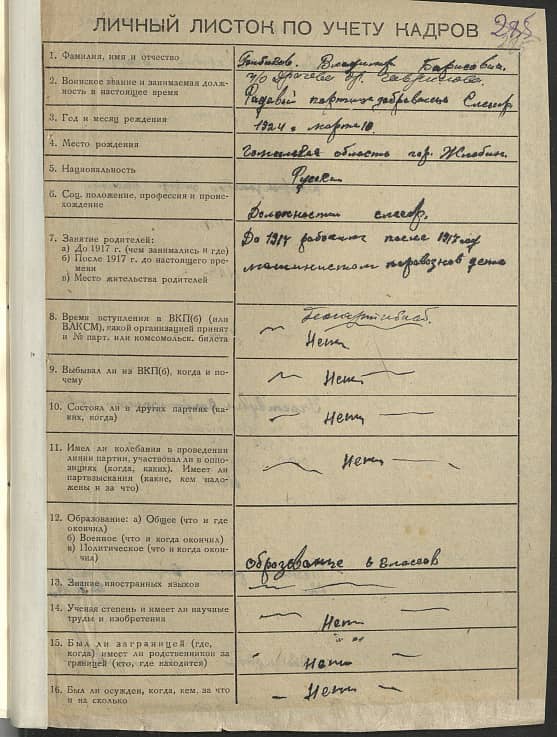 ЛИЧНЫЙ ЛИСТОК ПО УЧЕТУ КАДРОВ
1. Фамилия, имя и отчество
Владимир Борисович.
2. Воинское звание и занимаемая долж-
ность в настоящее время
Рядовой партизан
3. Год и месяц рождения
1924 г. марта 10.
4. Место рождения
Гомельская область гор. Жлобин.
5. Национальность
Русский
6. Соц. положение, профессия и проис-
хождение
слесарь.
7. Занятие родителей:
а) До 1917 г. (чем занимались и где)
б) После 1917 г. до настоящего вре-
мени
в) Место жительства родителей
До 1917 рабочим после 1917 году
машинистом паровозное депо
8. Время вступления в ВКП(б) (или
ВЛКСМ), какой организацией принят
и № парт. или комсомольск. билета
Нет
9. Выбывал ли из ВКП(б), когда и по-
чему
Нет
10. Состоял ли в других партиях (ка-
ких, когда)
Нет
11. Имел ли колебания в проведении
линии партии, участвовал ли в оппо-
зициях (когда, каких). Имеет ли
партвзыскания (какие, кем нало-
жены и за что)
Нет
12. Образование: а) Общее (что и где
окончил)
б) Военное (что и когда окончил)
в) Политическое (что и когда окон-
чил)
Образование 6 классов
13. Знание иностранных языков
14. Ученая степень и имеет ли научные
труды и изобретения
Нет
15. Был ли заграницей (где,
когда) имеет ли родственников за
границей (кто, где находится)
Нет
16. Был ли осужден, когда, кем, за что
и на сколько
Нет